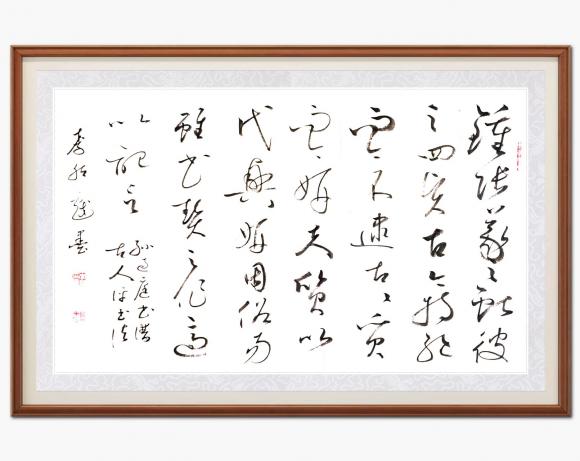 鍾張羲獻彼
之四賢古今特絕
而今不逮古古質
而今妍夫質以
代興妍因俗易
雖書契之作適
以記言
孫過庭書譜
古人評書法
書